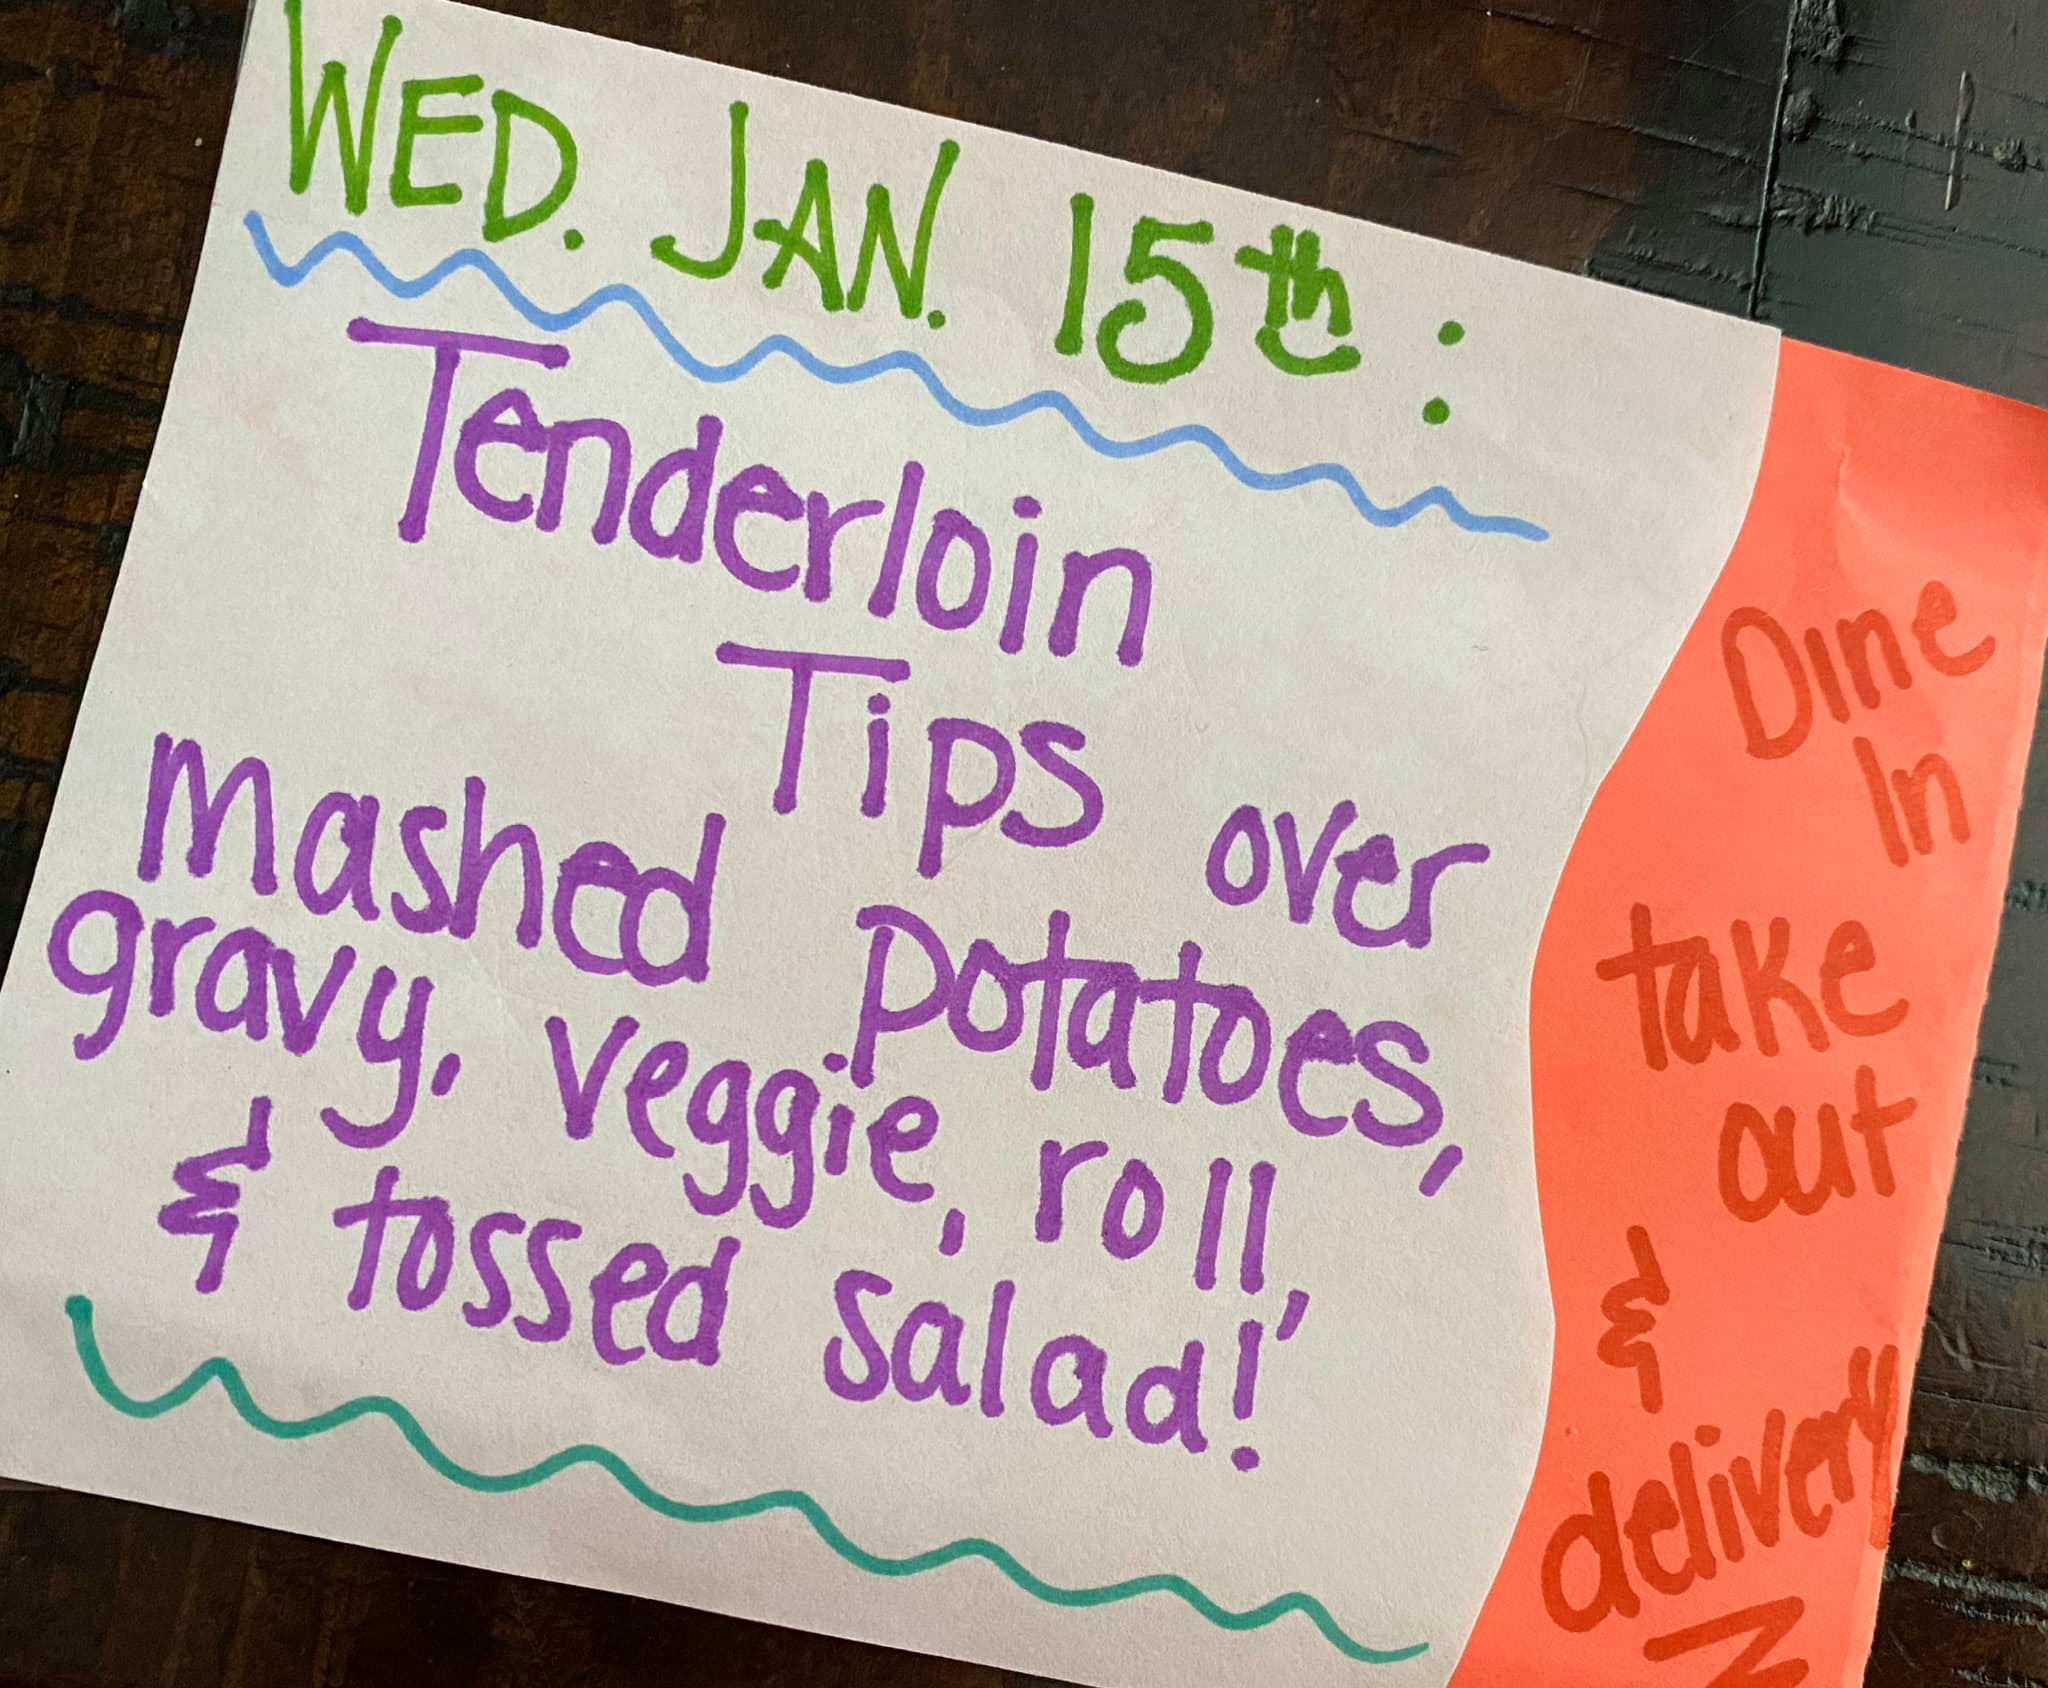 WED. JAN. 15th:
Tenderloin
Tips over
mashed potatoes,
gravy, veggie, roll,
& tossed salad!
Dine
In
take
out
&
delivery